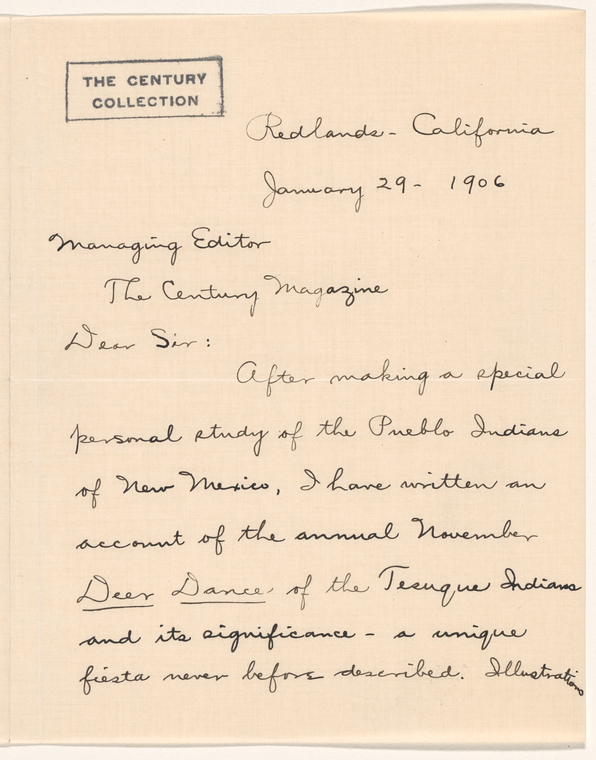 THE CENTURY
COLLECTION
Redlands - California
January 29 - 1906
Managing Editor
The Century Magazine
Dear Sir:
After making a special
personal study of the Pueblo Indians
of New Mexico, I have written an
account of the annual November
Deer Dance, of the Tesuque Indians
and its significance - a unique
fiesta never before described. Illustrations